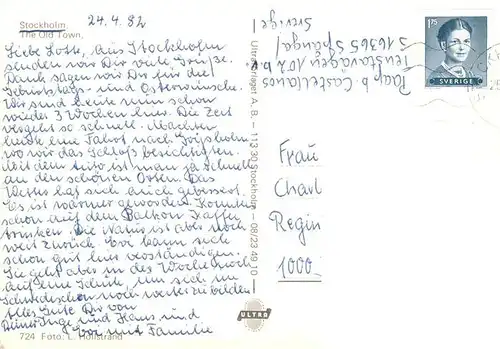 Stockholm
The Old Town.
24.4.82
Liebe Lotte, aus Stockholm
senden wir Dir viele Grüße.
Dank sagen wir Dir für die
Geburtstags- und Osterwünsche.
Wir sind heute nun schon
wieder 3 Wochen hier. Die Zeit
vergeht so schnell. Machten
heute eine Fahrt nach Gripsholm
wo wir das Schloß besichtigten.
Mit dem Auto ist man ja schnell
an den schönen Orten. Das
Wetter hat sich auch gebessert.
Es ist wärmer geworden. Konnten
schon auf dem Balkon Kaffee
trinken. Die Natur ist aber noch
weit zurück. Eva kann sich
schon gut hier verständigen.
Sie geht aber in der Woche noch
auf eine Schule, um sich im
Schwedischen noch weiter zu bilden
Alles Gute Dir von
Deiner Inge und Hans und
Eva mit Familie
724 Foto: L. Hollstrand
Ultraförlaget A.B. - 113 30 Stockholm - 08/23 49 10
ULTRA
Papp b. Castellanos
Tenstavägen 102
S 16365 Spånga/
Sverige/
1.75
SVERIGE
Frau
Charl
Regin
1000